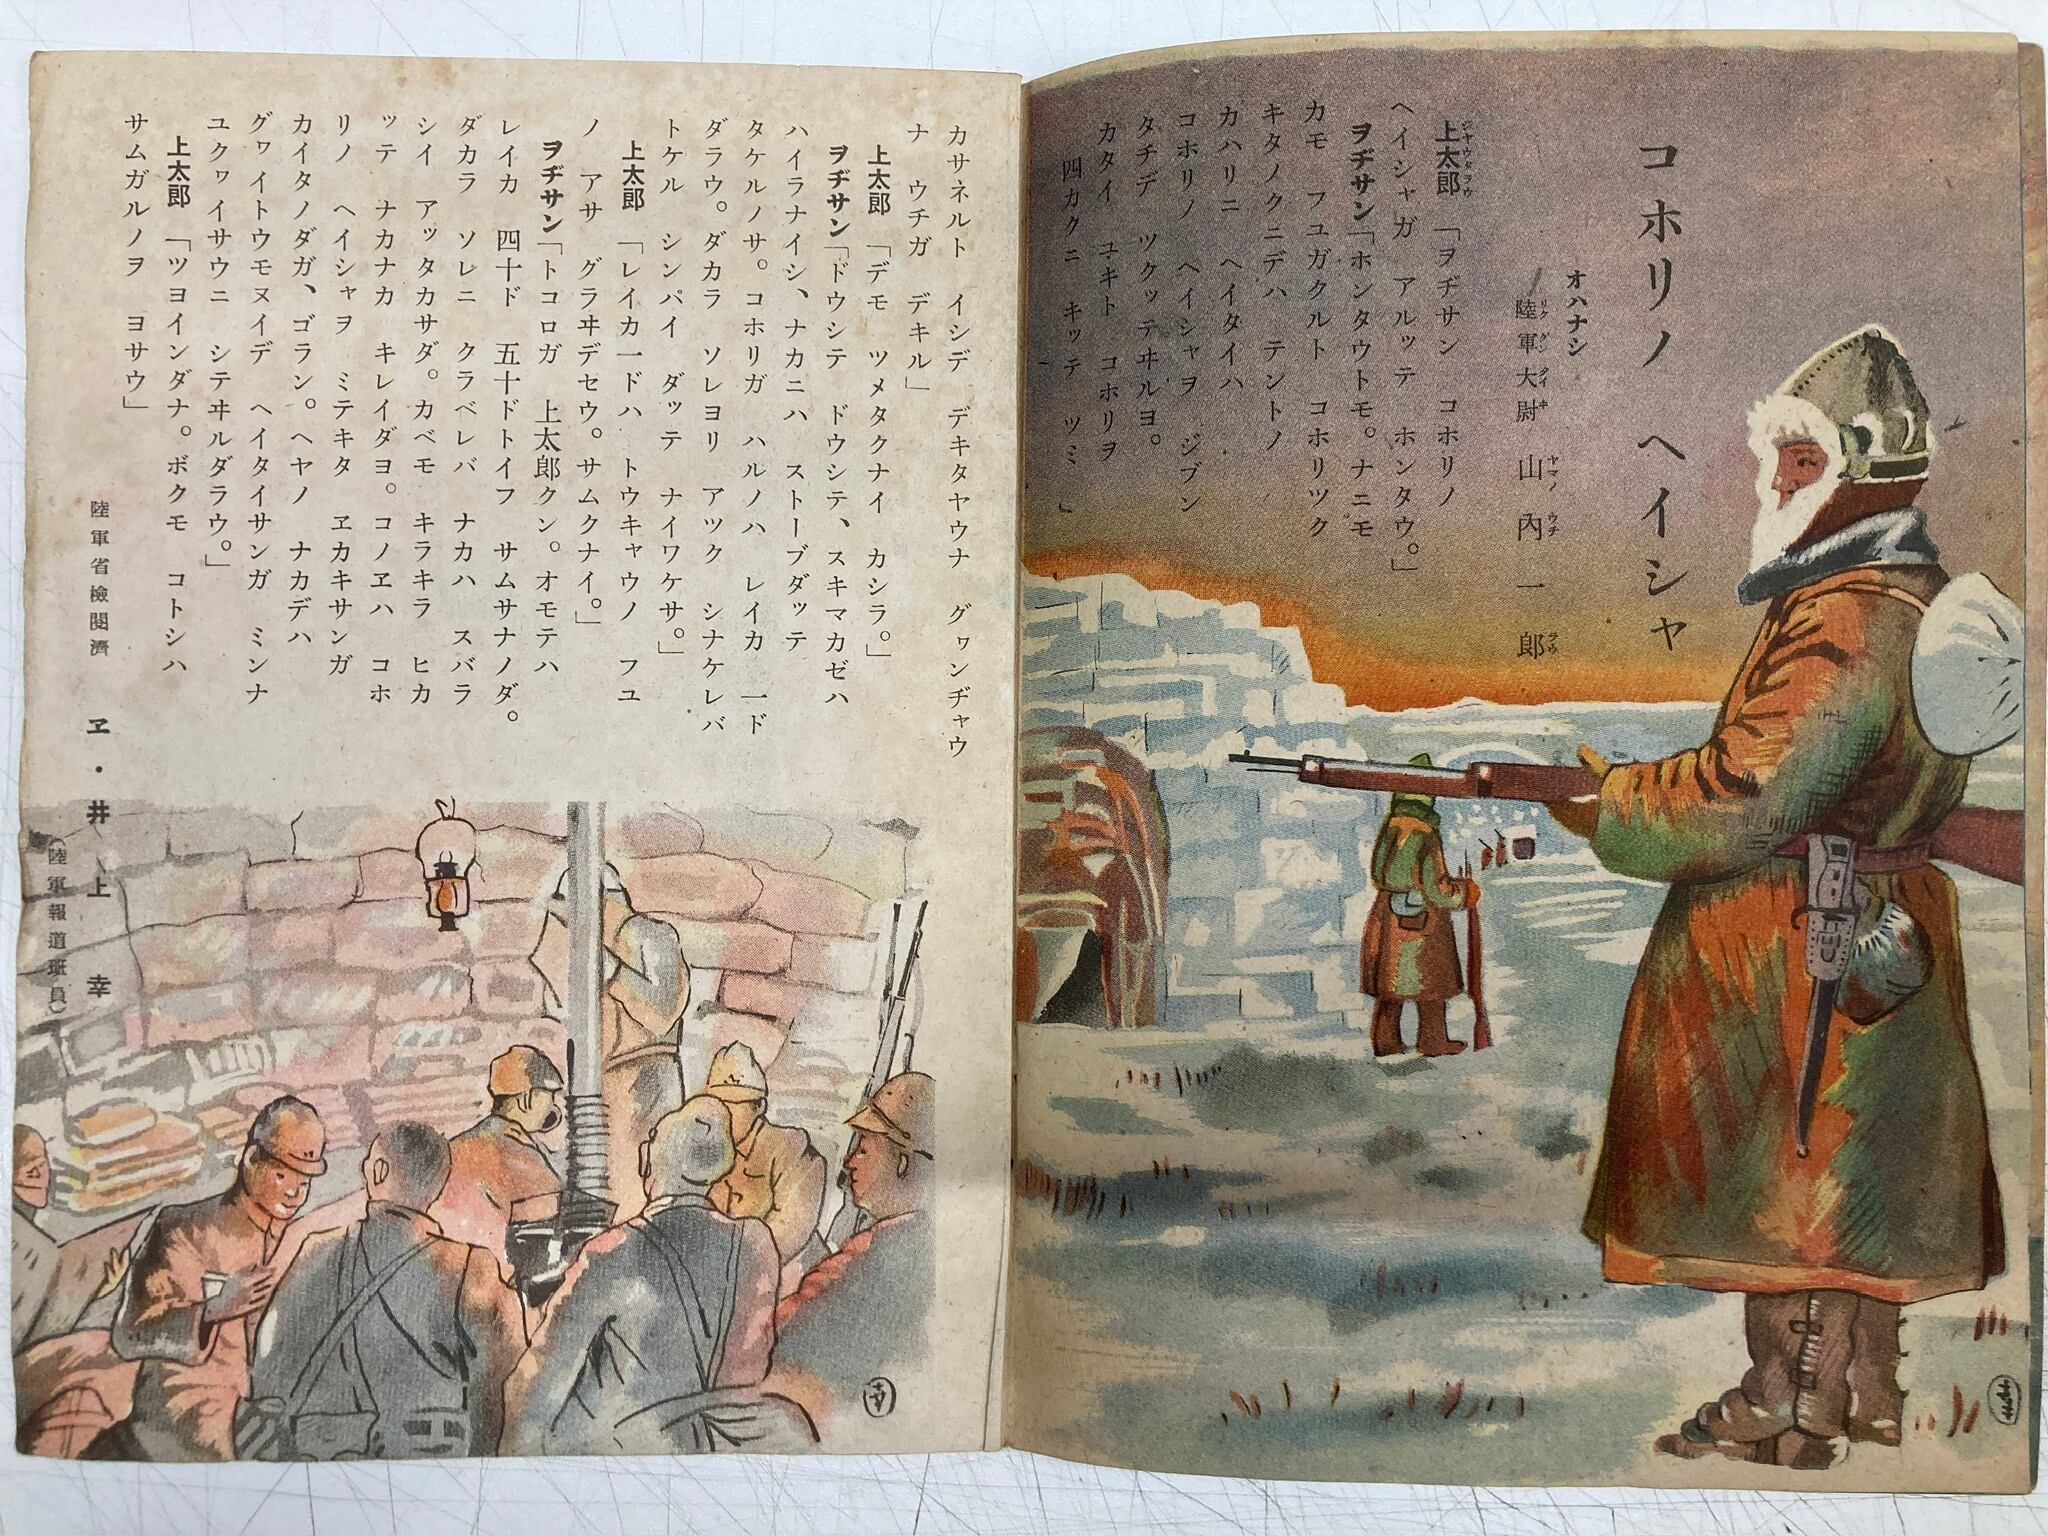 コホリノ ヘイシャ
オハナシ
陸軍大尉 山内一郎
リクグンタイヰ ヤマノウチ ラウ
上太郎 「ヲヂサン コホリノ
ジャウタラウ
ヘイシャガ アルッテ ホンタウ。」
ヲヂサン「ホンタウトモ。ナニモ
カモ フユガクルト コホリツク
キタノクニデハ テントノ
カハリニ ヘイタイハ
コホリノ ヘイシャヲ ジブン
タチデ ツクッテヰルヨ。
カタイ ユキト コホリヲ
四カクニ キッテ ツミ
カサネルト イシデ デキタヤウナ グヮンヂャウ
ナ ウチガ デキル」
上太郎 「デモ ツメタクナイ カシラ。」
ヲヂサン「ドウシテ ドウシテ、スキマカゼハ
ハイラナイシ、ナカニハ ストーブダッテ
タケルノサ。コホリガ ハルノハ レイカ 一ド
ダラウ。ダカラ ソレヨリ アツク シナケレバ
トケル シンパイ ダッテ ナイワケサ。」
上太郎 「レイカ一ドハ トウキャウノ フユ
ノ アサ グラヰデセウ。サムクナイ。」
ヲヂサン「トコロガ 上太郎クン。オモテハ
レイカ 四十ド 五十ドトイフ サムサナノダ。
ダカラ ソレニ クラベレバ ナカハ スバラ
シイ アッタカサダ。カベモ キラキラ ヒカ
ッテ ナカナカ キレイダヨ。コノヱハ コホ
リノ ヘイシャヲ ミテキタ ヱカキサンガ
カイタノダガ、ゴラン。ヘヤノ ナカデハ
グヮイトウモヌイデ ヘイタイサンガ ミンナ
ユクヮイサウニ シテヰルダラウ。」
上太郎 「ツヨインダナ。ボクモ コトシハ
サムガルノヲ ヨサウ」
陸軍省檢閲濟 ヱ・井上幸
(陸軍報道班員)